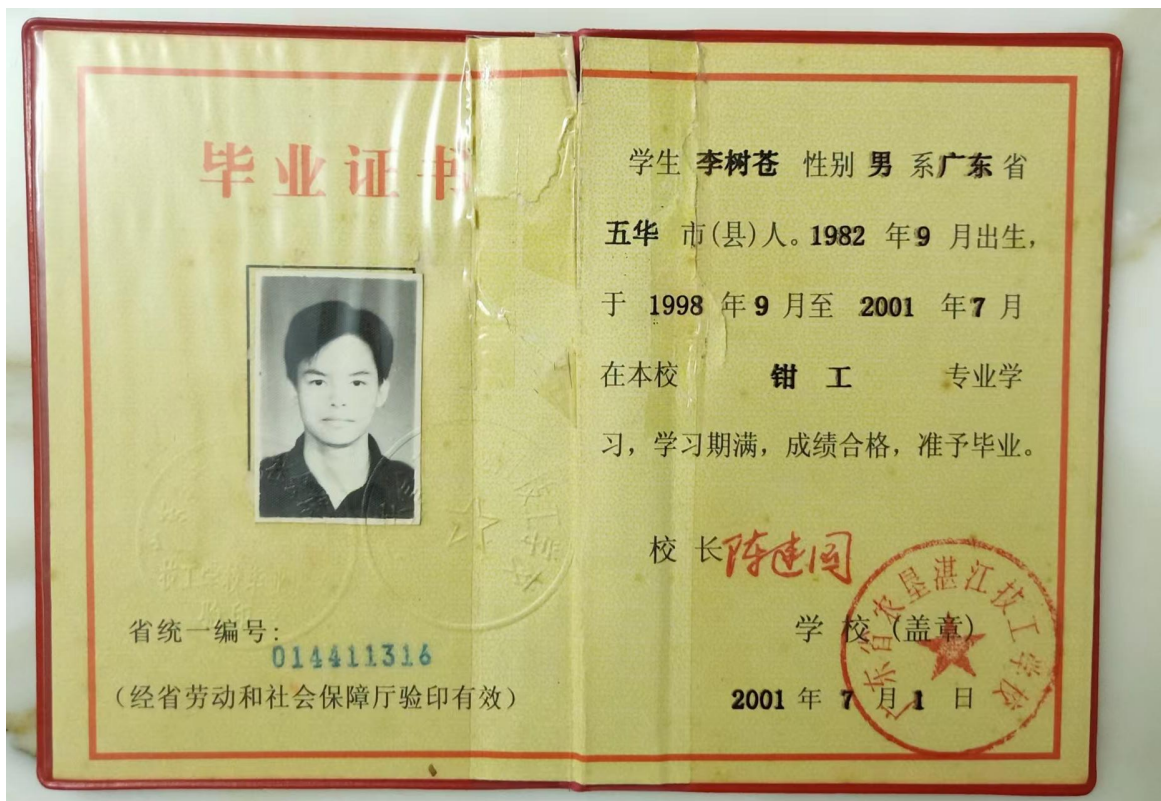 毕业证书
省统一编号:
014411316
(经省劳动和社会保障厅验印有效)
学生 李树苍 性别 男 系广东省
五华 市(县)人。1982 年9 月出生,
于 1998 年9 月至 2001 年7 月
在本校 钳 工 专业学
习,学习期满,成绩合格,准予毕业。
校 长 陈建国
学 校 (盖章)
广东省农垦湛江技工学校
2001 年 7 月 1 日